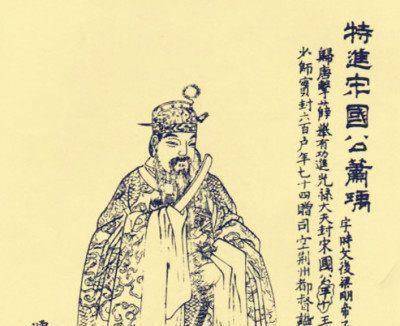 特進宋國公蕭瑀
字時文後梁明帝
歸唐擊薛舉有功進光祿大夫封宋國公
少師實封六百戶年七十四贈司空荆州都督諡